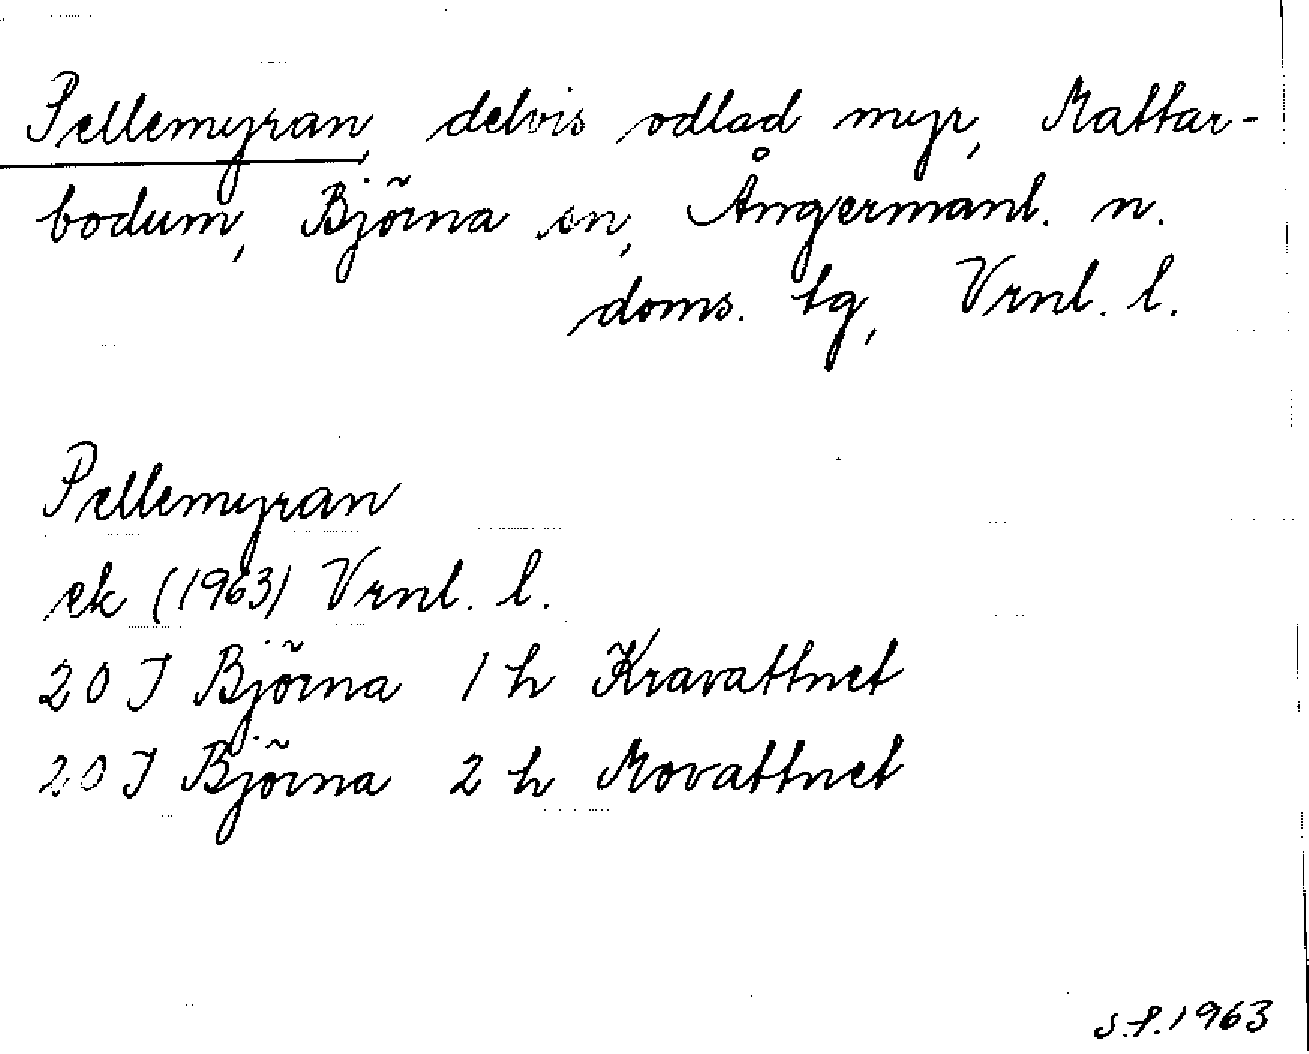 Pellemyran, delvis odlad myr, Mattar-
bodum, Björna sn, Ångermanl. n.
doms. tg, Vrnl. l.
Pellemyran
ek (1963) Vrnl. l.
20 I Björna 1 h Kravattnet
20 I Björna 2 h Movattnet
s.f. 1963